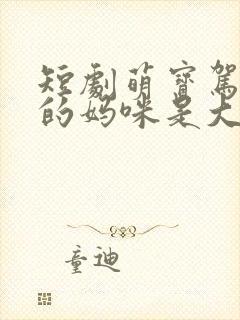 短劇萌寶駕
的媽咪是大
童迪